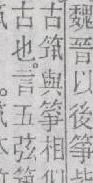 魏晉以後箏皆
古筑與箏相似
古也。言五弦筑